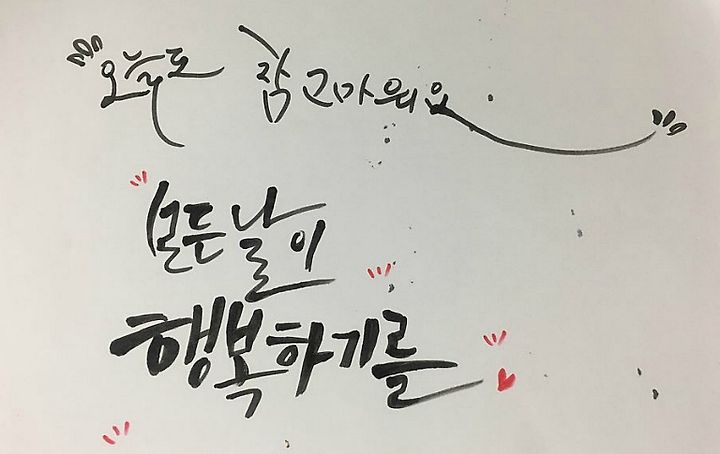 오늘도 참 고마워요
모든 날이
행복하기를